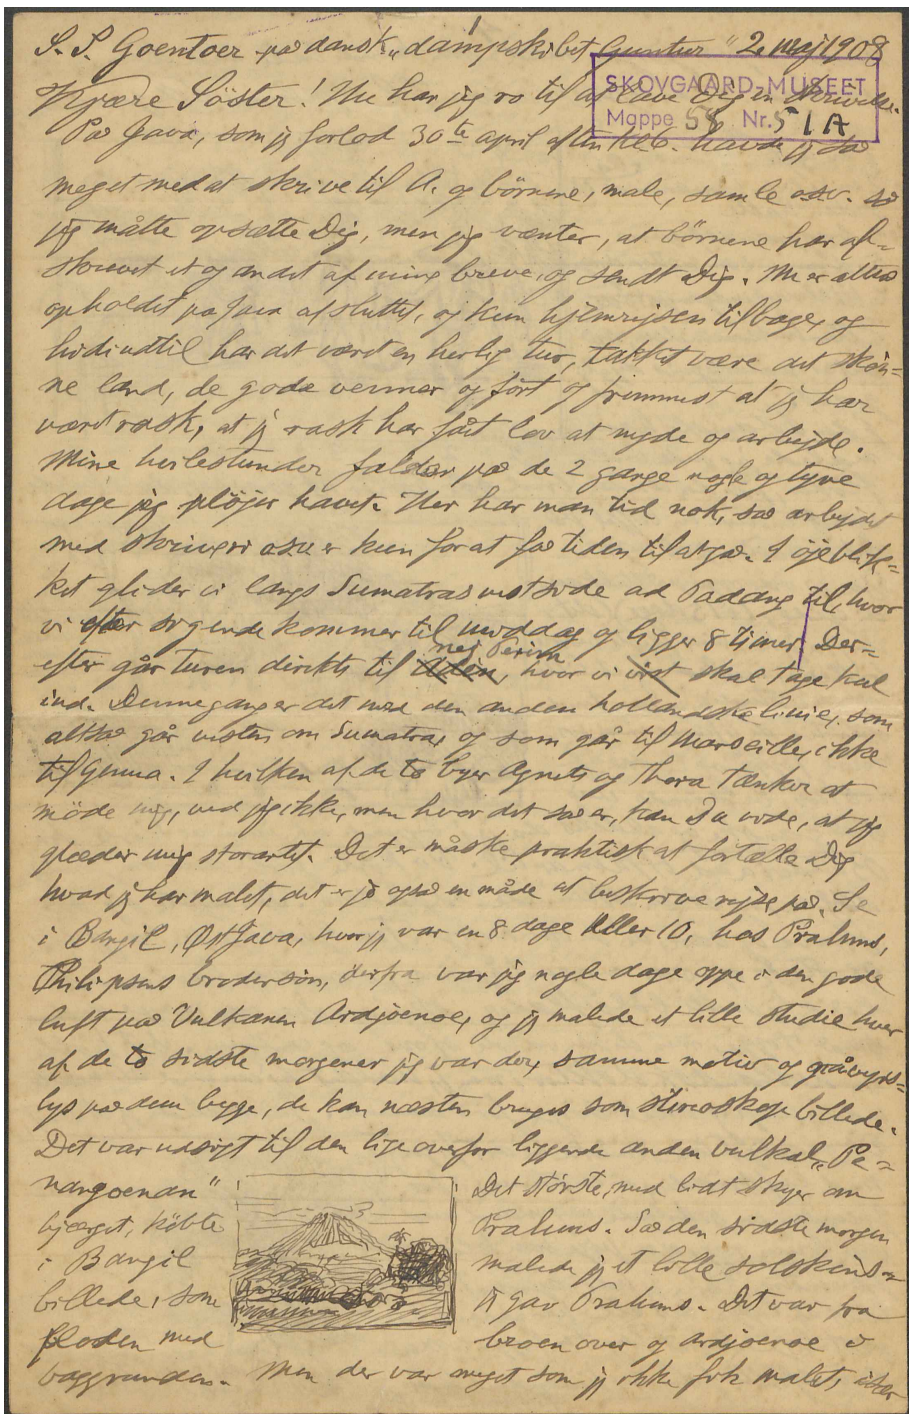 1
S. S. Goentoer på dansk „dampskibet Guntur" 2. maj 1908
SKOVGAARD-MUSEET
Mappe 58 Nr. 51A
Kjære Söster! Nu har jeg ro til at lave Dig en skrivelse.
På Java, som jeg forlod 30te april aften kl 6. havde jeg så
meget med at skrive til A. og börnene, male, samle osv. så
jeg måtte opsætte Dig, men jeg vænter, at börnene har af=
skrevet et og andet af mine breve, og sendt Dig. Nu er altså
opholdet på Java afsluttet, og kun hjemrejsen tilbage, og
hidindtil har det været en herlig tur, takket være det skön=
ne land, de gode venner og först og fremmest at jeg har
været rask, at jeg rask har fået lov at nyde og arbejde.
Mine hvilestunder falder på de 2 gange nogle og tyve
dage jeg plöjer havet. Her har man tid nok, så arbejdet
med skriveri osv er kun for at få tiden til at gå. I öjeblik=
ket glider vi langs Sumatras vestside ad Padang til, hvor
vi efter sigende kommer til middag og ligger 8 timer. Der=
efter går turen direkte til Aden, nej Perim, hvor vi vist skal tage kul
ind. Denne gang er det med den anden hollandske linie, som
altså går vesten om Sumatra, og som går til Marseille, ikke
til Genua. I hvilken af de to byer Agnete og Thora tænker at
möde mig, ved jeg ikke, men hvor det så er, kan Du vide, at jeg
glæder mig storartet. Det er måske praktisk at fortælle Dig
hvad jeg har malet, det er jo også en måde at beskrive rejse på. Se
i Bangil, Øst Java, hvor jeg var en 8 dage eller 10, hos Prahms,
Philipsens brodersön, derfra var jeg nogle dage oppe i den gode
luft på Vulkanen Ardjoenoe, og jeg malede et lille studie hver
af de to sidste morgener jeg var der, samme motiv og
lys på dem begge, de kan næsten bruges som stereoskop billede.
Det var udsigt til den lige overfor liggende anden vulkan „Pe=
nangoenan"
Det störste, med lidt skyer om
bjærget, köbte
Prahms. Så den sidste morgen
i Bangil
malede jeg et lille solskins=
billede, som
jeg gav Prahms. Det var fra
floden med
broen over og Ardjoenoe i
baggrunden. Men der var meget som jeg ikke fik malet, især